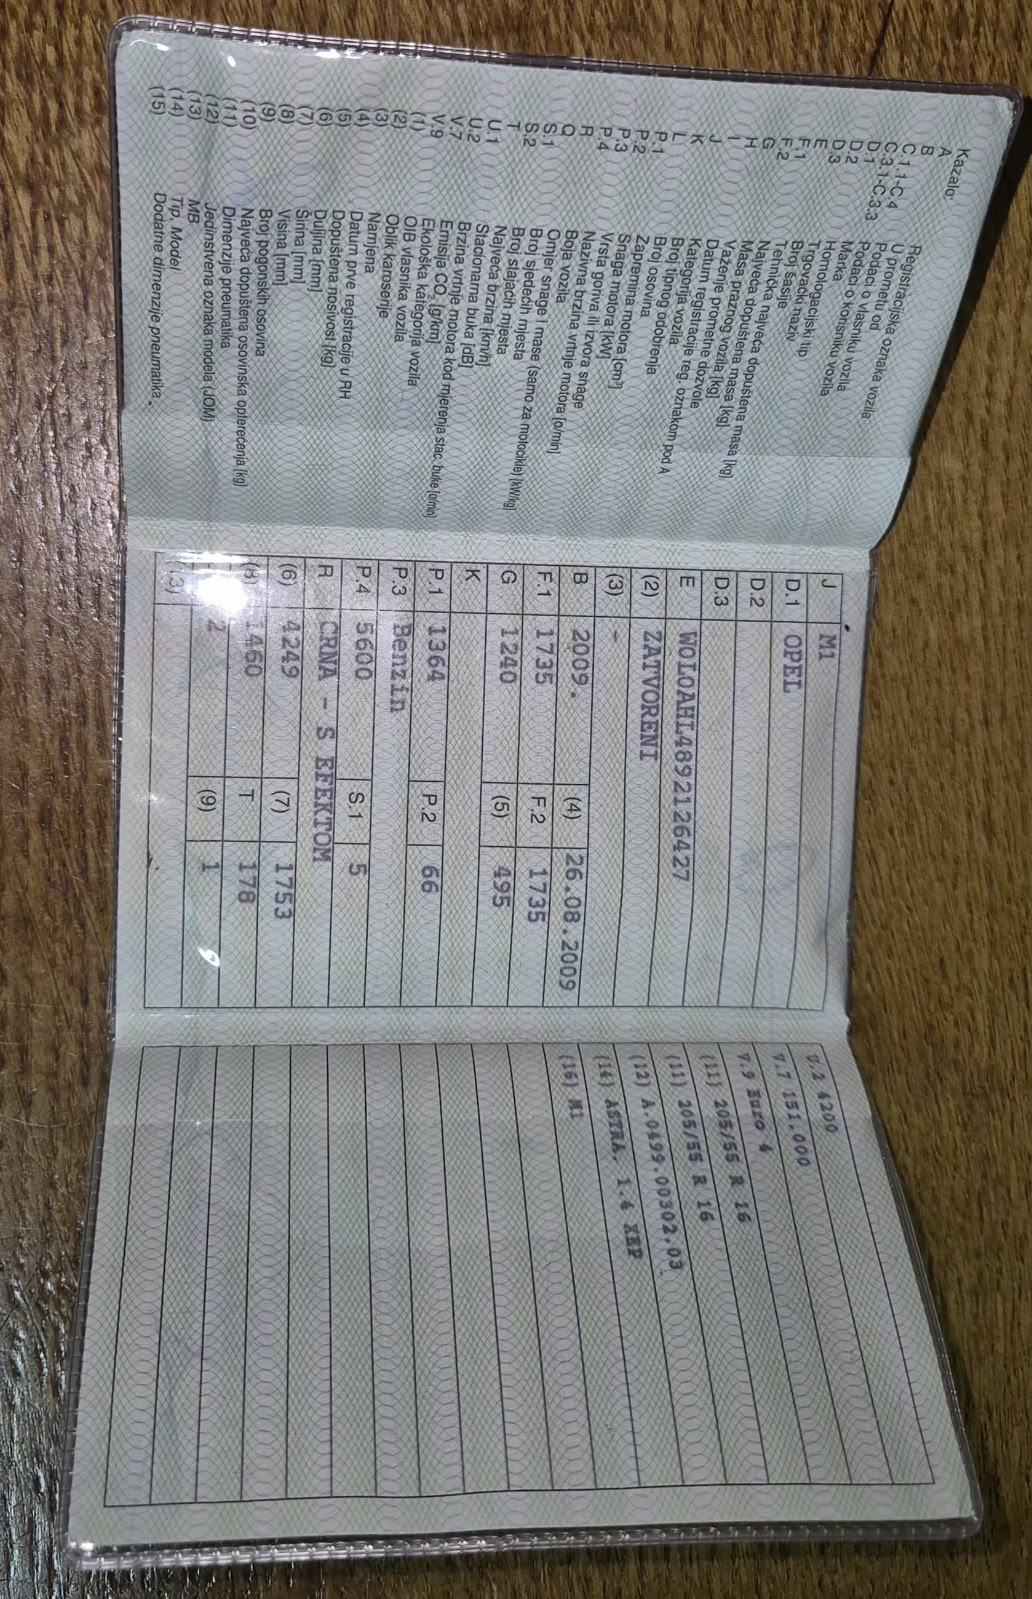 Kazalo:
A Registracijska oznaka vozila
B U prometu od
C.1.1-C.4 Podaci o vlasniku vozila
C.3.1-C.3.3 Podaci o korisniku vozila
D.1 Marka
D.2 Homologacijski tip
D.3 Trgovački naziv
E Broj šasije
F.1 Tehnička najveća dopuštena masa [kg]
F.2 Najveća dopuštena masa [kg]
G Masa praznog vozila [kg]
H Važenje prometne dozvole
I Datum registracije reg. oznakom pod A
J Kategorija vozila
K Broj tipnog odobrenja
L Broj osovina
P.1 Zapremnina motora [cm³]
P.2 Snaga motora [kW]
P.3 Vrsta goriva ili izvora snage
P.4 Nazivna brzina vrtnje motora [o/min]
R Boja vozila
Q Omjer snage i mase (samo za motocikle) [kW/kg]
S.1 Broj sjedećih mjesta
S.2 Broj stajaćih mjesta
T Najveća brzina [km/h]
U.1 Stacionarna buka [dB]
U.2 Brzina vrtnje motora kod mjerenja stac. buke [o/min]
V.7 Emisija CO2 [g/km]
V.9 Ekološka kategorija vozila
(1) OIB vlasnika vozila
(2) Oblik karoserije
(3) Namjena
(4) Datum prve registracije u RH
(5) Dopuštena nosivost [kg]
(6) Duljina [mm]
(7) Širina [mm]
(8) Visina [mm]
(9) Broj pogonskih osovina
(10) Najveća dopuštena osovinska opterećenja [kg]
(11) Dimenzije pneumatika
(12) Jedinstvena oznaka modela (JOM)
(13) MB
(14) Tip, Model
(15) Dodatne dimenzije pneumatika
J M1
D.1 OPEL
D.2
D.3
E WOLOAHL4892126427
(2) ZATVORENI
(3) -
B 2009. (4) 26.08.2009
F.1 1735 F.2 1735
G 1240 (5) 495
K
P.1 1364 P.2 66
P.3 Benzin
P.4 5600 S.1 5
R CRNA - S EFEKTOM
(6) 4249 (7) 1753
(8) 1460 T 178
2 (9) 1
U.2 4200
V.7 151.000
V.9 Euro 4
(11) 205/55 R 16
(11) 205/55 R 16
(12) A.0499.00302.03
(14) ASTRA, 1.4 XEP
(16) M1